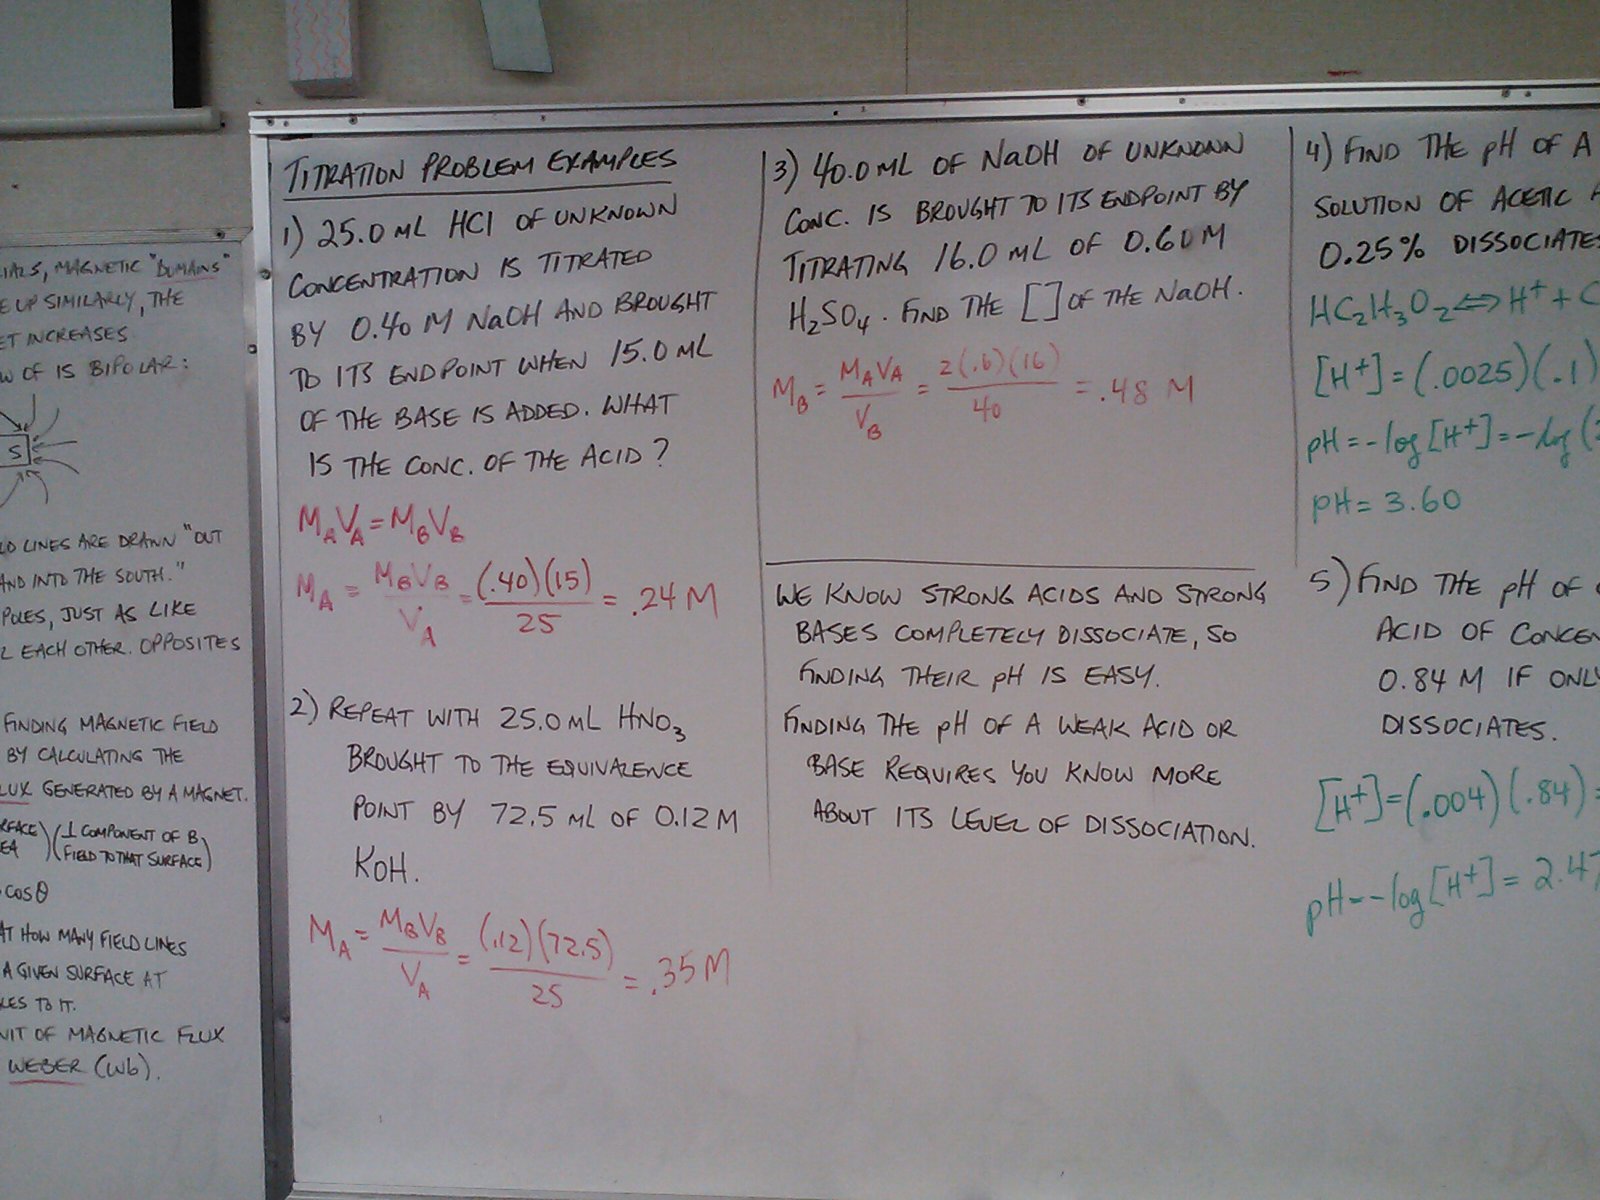 MAGNETIC "DOMAINS"
E UP SIMILARLY, THE
ET INCREASES
W OF IS BIPOLAR:
S
LINES ARE DRAWN "OUT
AND INTO THE SOUTH."
POLES, JUST AS LIKE
EACH OTHER. OPPOSITES
FINDING MAGNETIC FIELD
BY CALCULATING THE
LUX GENERATED BY A MAGNET.
RFACE EA)(⊥ COMPONENT OF B
FIELD TO THAT SURFACE)
cos θ
AT HOW MANY FIELD LINES
A GIVEN SURFACE AT
LES TO IT.
NIT OF MAGNETIC FLUX
WEBER (Wb).
TITRATION PROBLEM EXAMPLES
1) 25.0 mL HCl OF UNKNOWN
CONCENTRATION IS TITRATED
BY 0.40 M NaOH AND BROUGHT
TO ITS ENDPOINT WHEN 15.0 mL
OF THE BASE IS ADDED. WHAT
IS THE CONC. OF THE ACID?
M_A V_A = M_B V_B
M_A = M_B V_B / V_A = (.40)(15) / 25 = .24 M
2) REPEAT WITH 25.0 mL HNO₃
BROUGHT TO THE EQUIVALENCE
POINT BY 72.5 mL OF 0.12 M
KOH.
M_A = M_B V_B / V_A = (.12)(72.5) / 25 = .35 M
3) 40.0 mL OF NaOH OF UNKNOWN
CONC. IS BROUGHT TO ITS ENDPOINT BY
TITRATING 16.0 mL OF 0.60 M
H₂SO₄. FIND THE [ ] OF THE NaOH.
M_B = M_A V_A / V_B = 2(.6)(16) / 40 = .48 M
WE KNOW STRONG ACIDS AND STRONG
BASES COMPLETELY DISSOCIATE, SO
FINDING THEIR pH IS EASY.
FINDING THE pH OF A WEAK ACID OR
BASE REQUIRES YOU KNOW MORE
ABOUT ITS LEVEL OF DISSOCIATION.
4) FIND THE pH OF A
SOLUTION OF ACETIC A
0.25% DISSOCIATES
HC₂H₃O₂ ⇔ H⁺ + C
[H⁺] = (.0025)(.1)
pH = -log[H⁺] = -log(2
pH = 3.60
5) FIND THE pH OF
ACID OF CONCEN
0.84 M IF ONLY
DISSOCIATES.
[H⁺] = (.004)(.84) =
pH = -log[H⁺] = 2.47